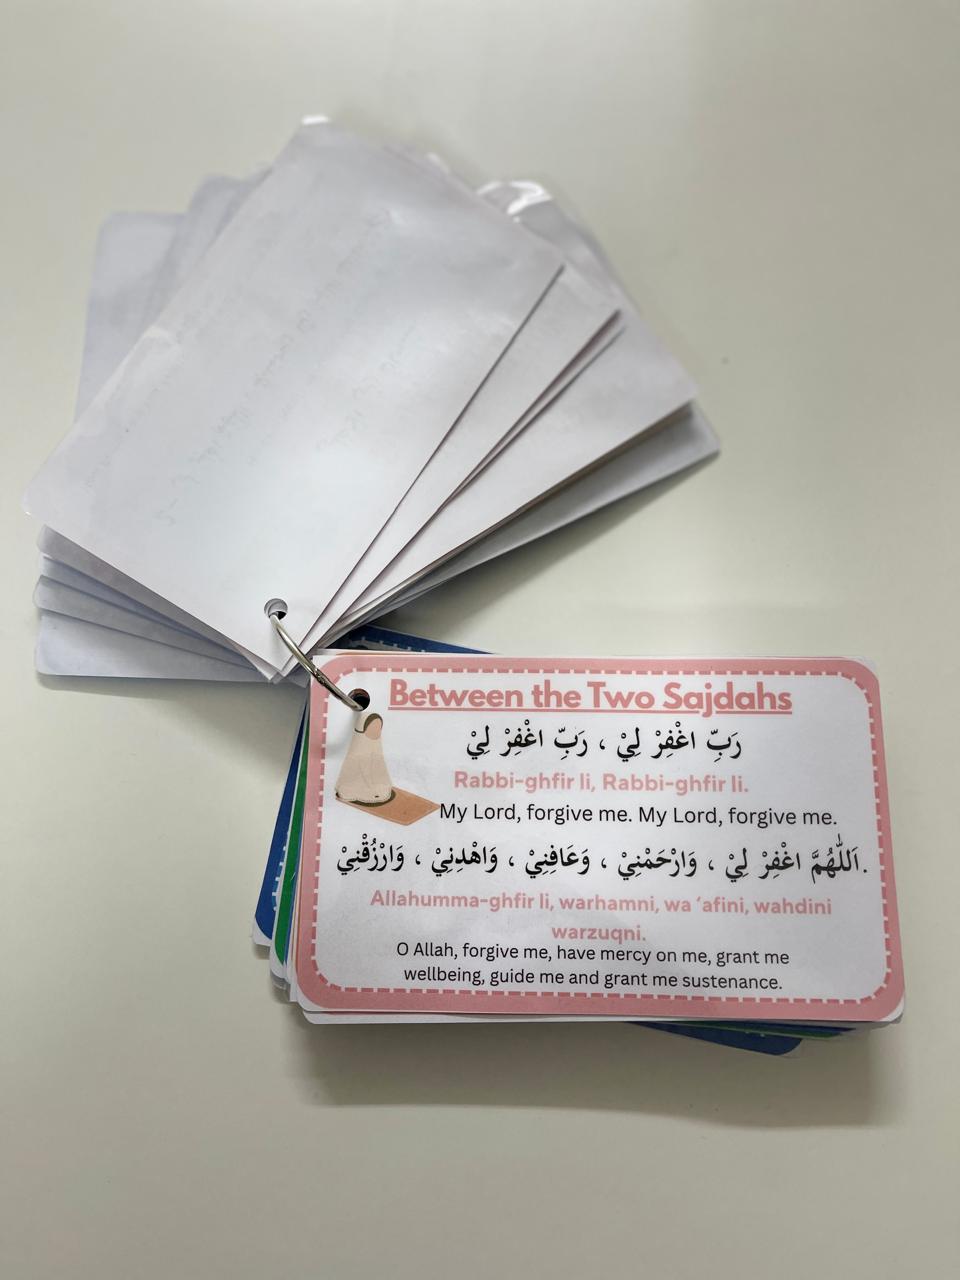 Between the Two Sajdahs
رَبِّ اغْفِرْ لِيْ ، رَبِّ اغْفِرْ لِيْ
Rabbi-ghfir li, Rabbi-ghfir li.
My Lord, forgive me. My Lord, forgive me.
اَللّٰهُمَّ اغْفِرْ لِيْ ، وَارْحَمْنِيْ ، وَعَافِنِيْ ، وَاهْدِنِيْ ، وَارْزُقْنِيْ.
Allahumma-ghfir li, warhamni, wa ‘afini, wahdini
warzuqni.
O Allah, forgive me, have mercy on me, grant me
wellbeing, guide me and grant me sustenance.